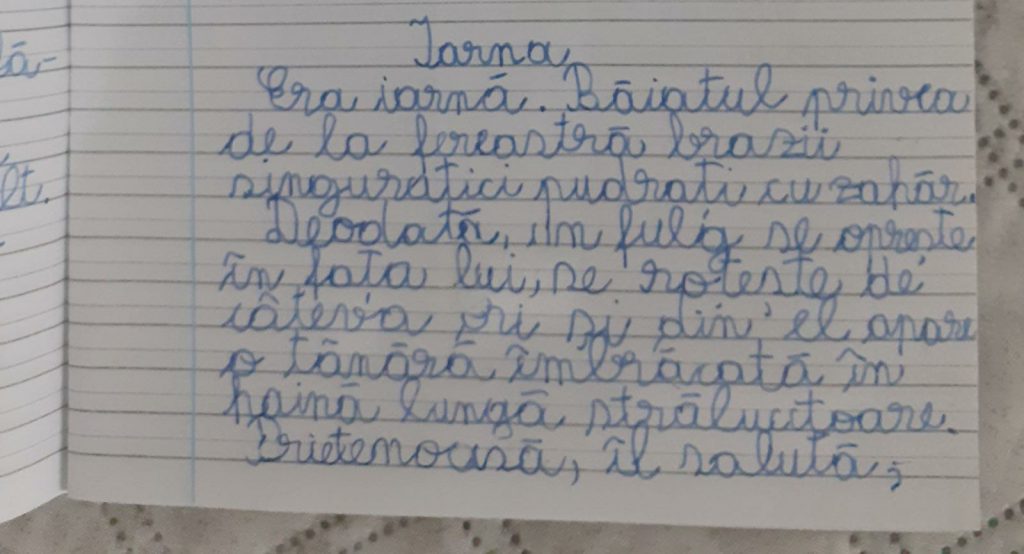 Iarna
Era iarnă. Băiatul privea
de la fereastră brazii
singuratici pudrați cu zahăr.
Deodată, un fulg se oprește
în fața lui, se rotește de
câteva ori și din el apare
o tânără îmbrăcată în
haină lungă strălucitoare.
Prietenoasă, îl salută;
lă-
et.